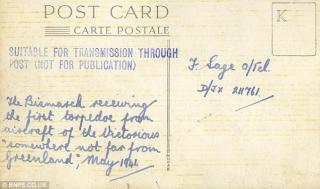 POST CARD
CARTE POSTALE
K
SUITABLE FOR TRANSMISSION THROUGH
POST (NOT FOR PUBLICATION)
F. Sage O/Tel.
D/Jx 211761.
The Bismarck receiving
the first torpedoe from
aircraft of the Victorious
"somewhere not far from
Greenland", May 1941
© BNPS.CO.UK